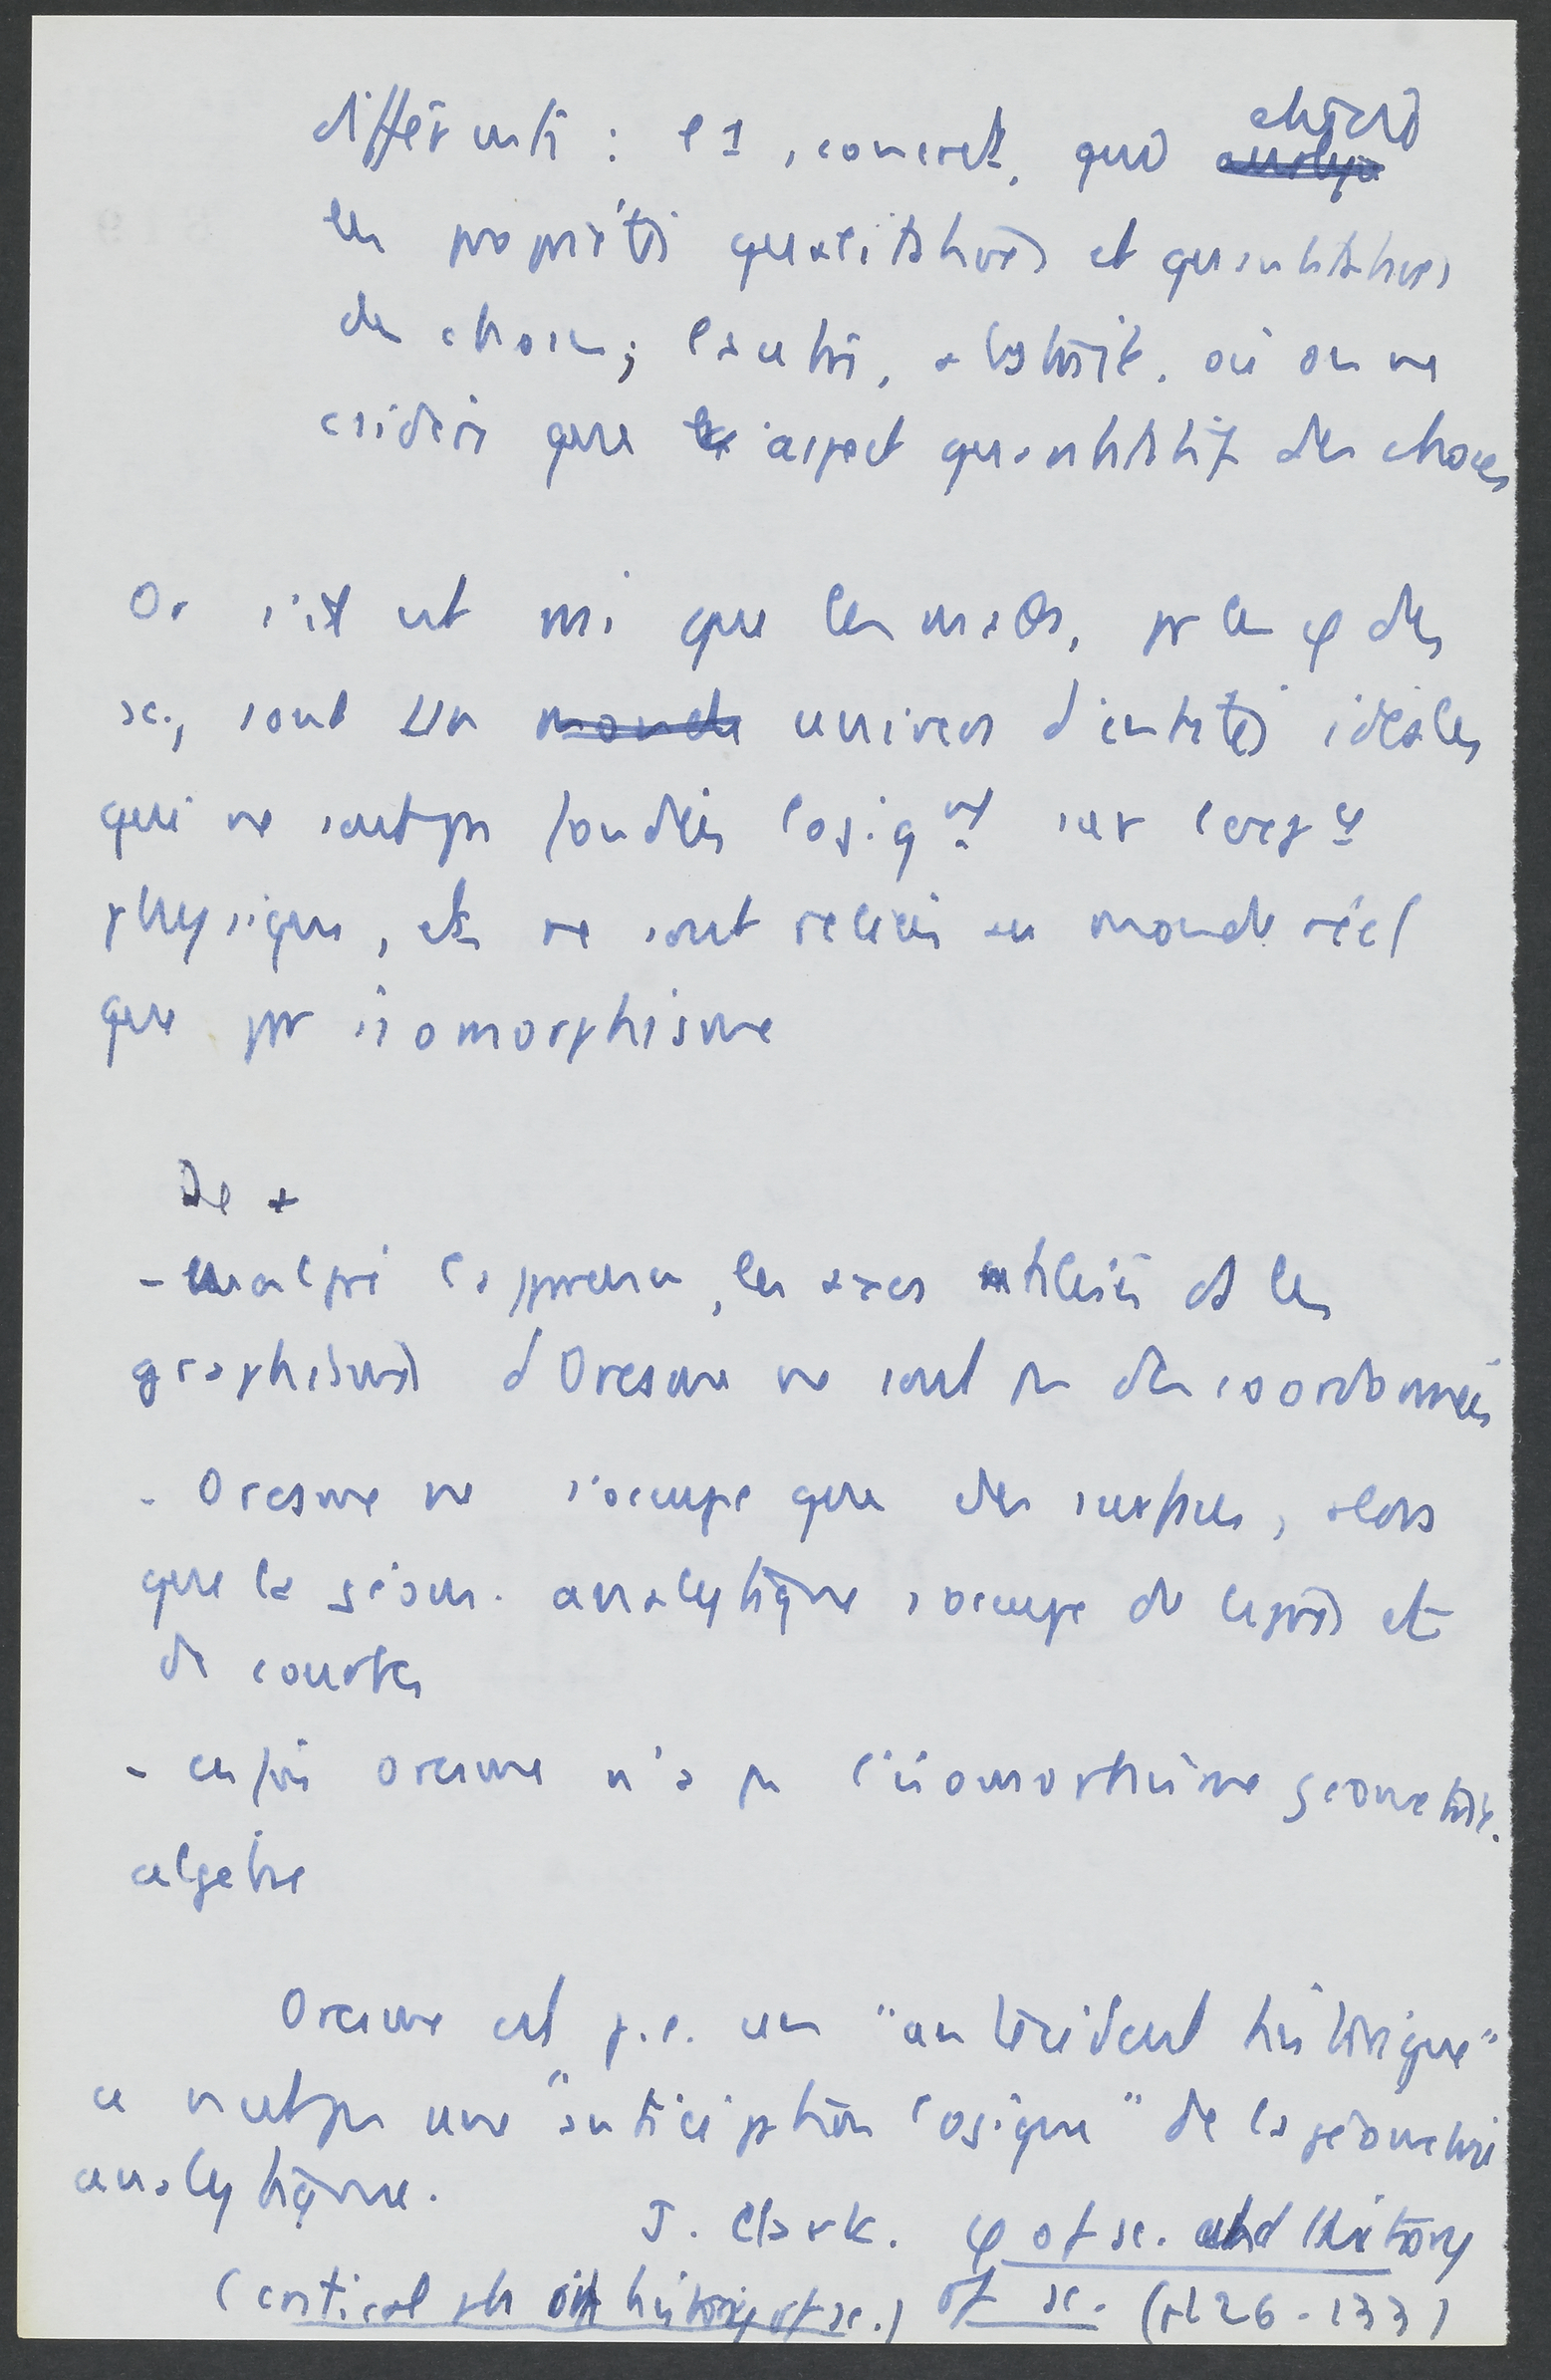 différents : l'1, concret, qui étudie
les propriétés qualitatives et quantitatives
des choses ; l'autre, abstrait, où on ne
csidère que aspect quantitatif des choses
Or s'il est vrai que les maths, pr la φ des
sc., sont un monde univers d'entités idéales
qui ne sont pas fondées logiqnt sur l'expce
physique, et ne sont reliées au monde réel
que par isomorphisme
De +
- malgré l'apparence, les axes utilisés et les
graphismes d'Oresme ne sont pas des coordonnées
- Oresme ne s'occupe que des surfaces, alors
que la géom. analytique s'occupe de lignes et
de courbes
- enfin Oresme n'a pas l'isomorphisme géométrie.
algèbre
Oresme est p.e. un "antécédent historique"
ce n'est pas une "anticipation logique" de la géométrie
analytique.
J. Clark. φ of sc. and history
(critical ph in history of sc.) of sc. (p126-133)